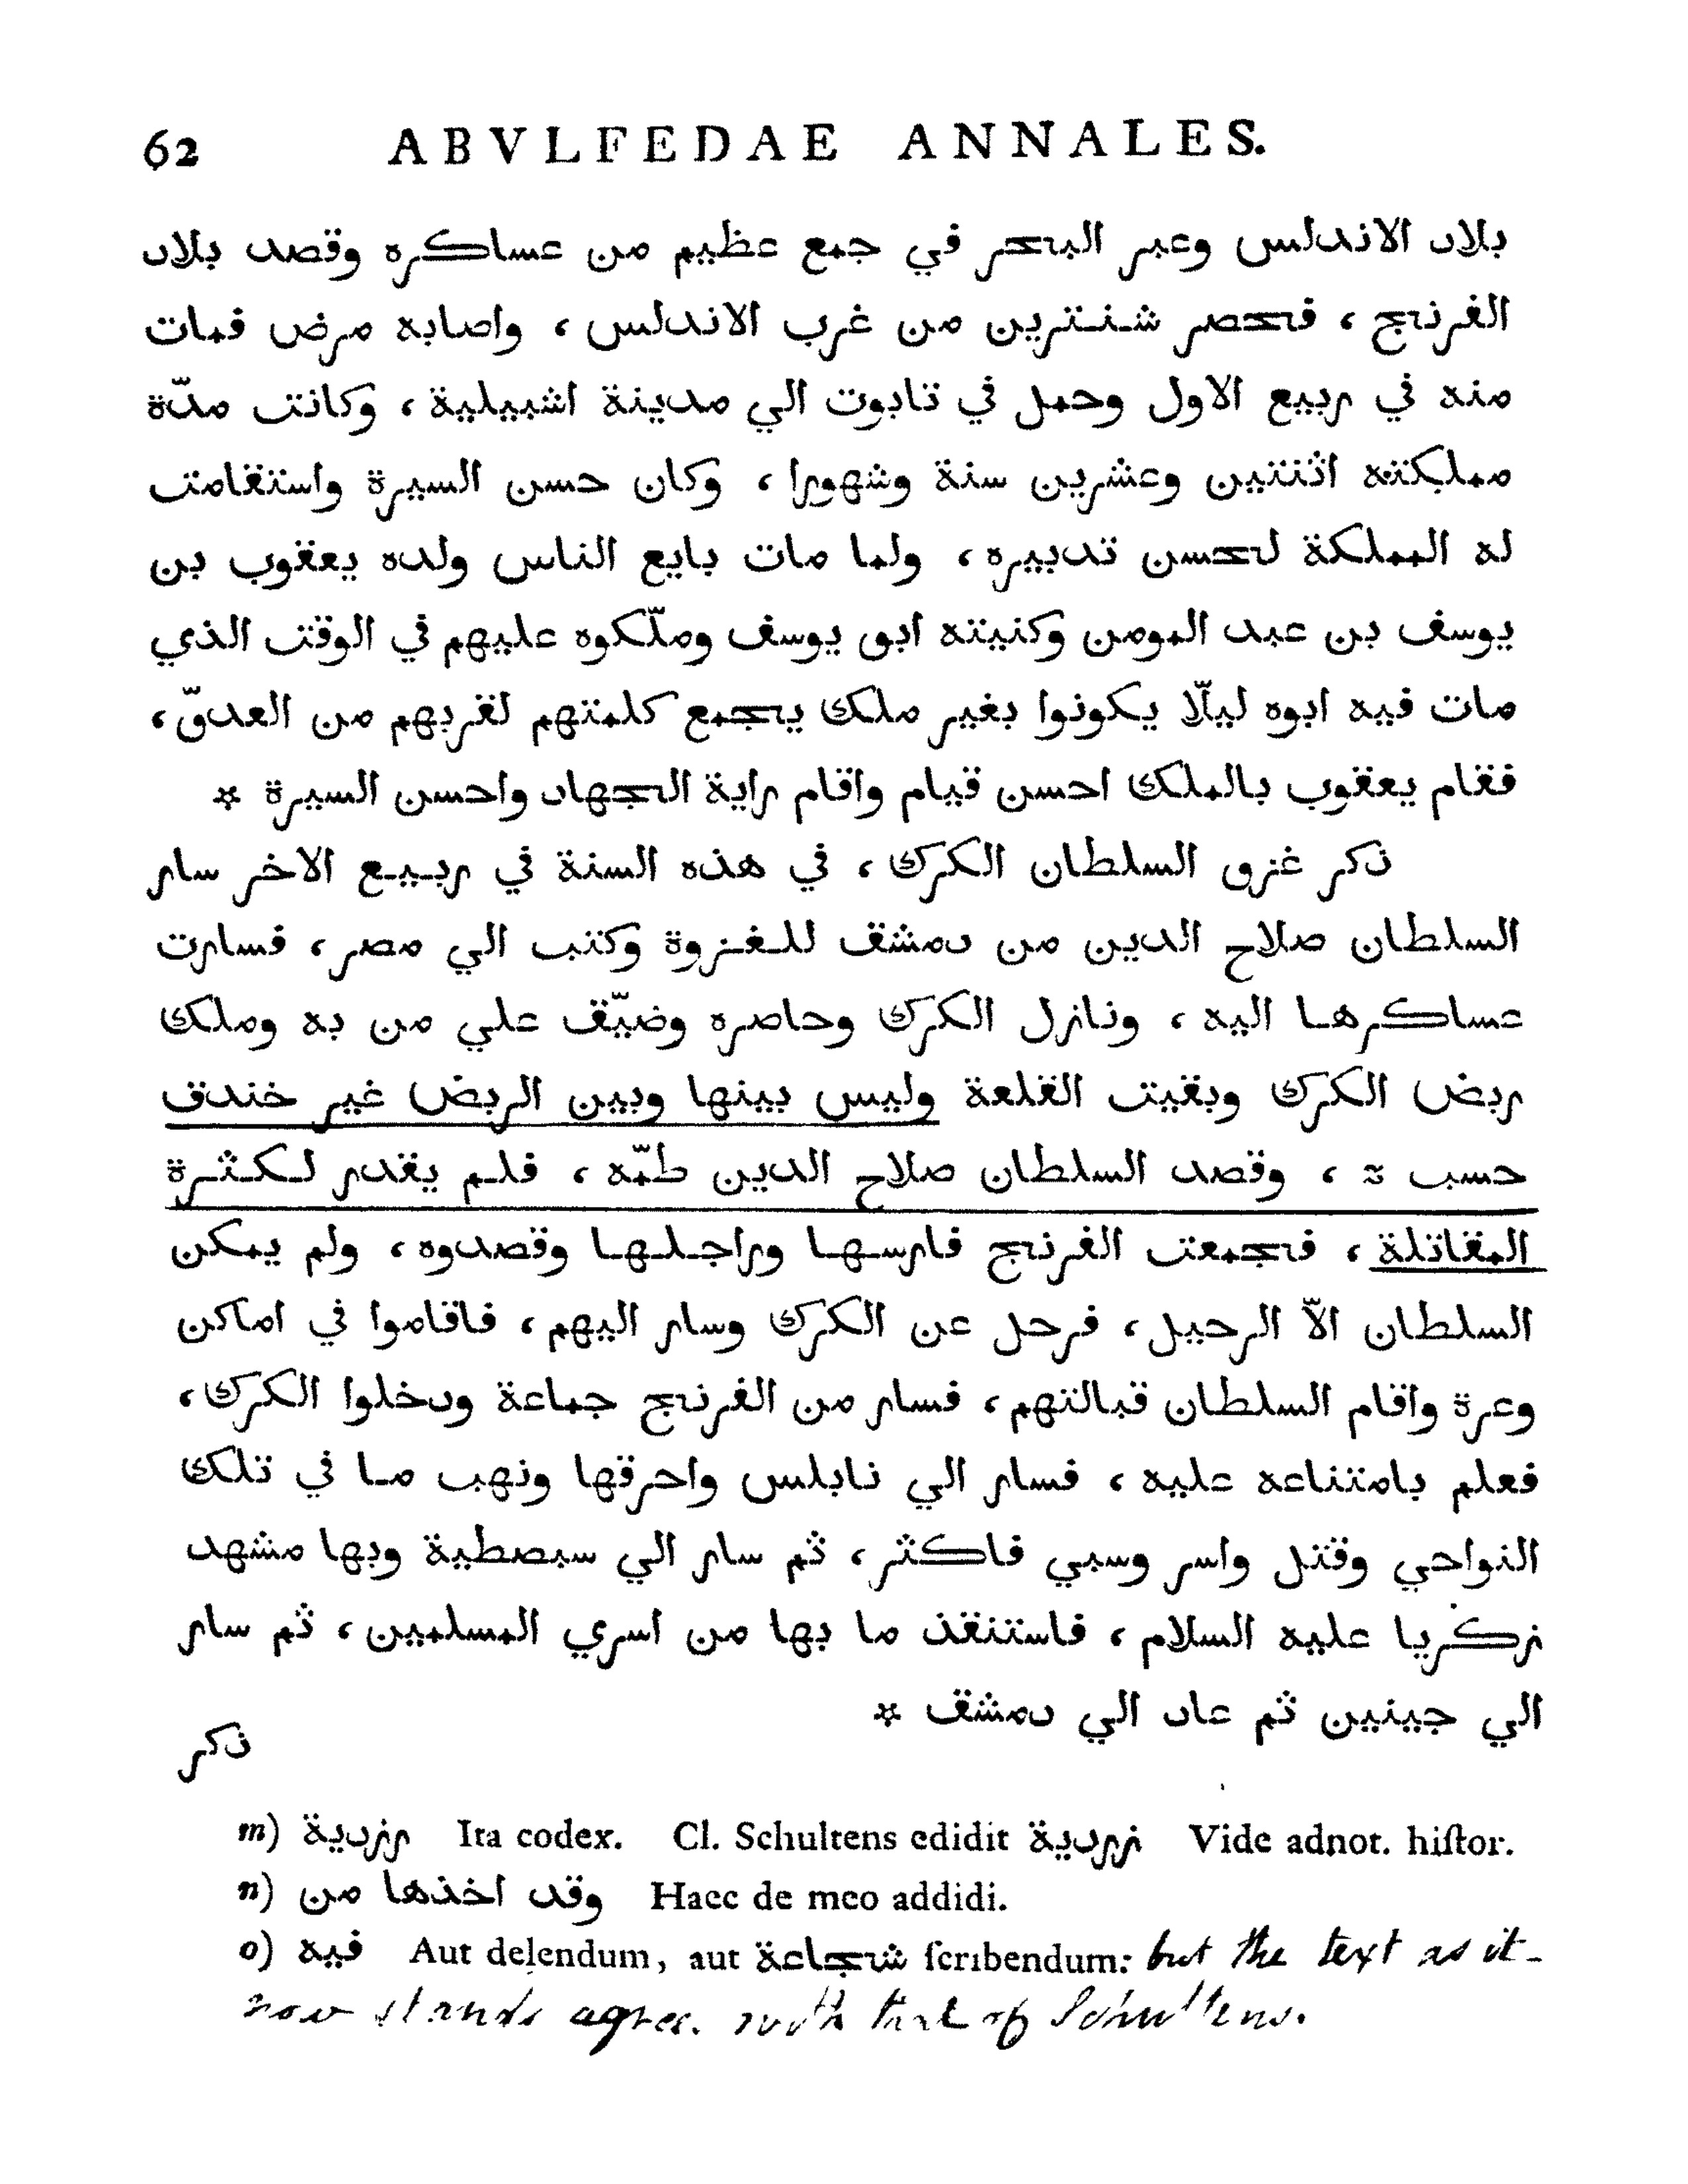 62 ABVLFEDAE ANNALES.
بلاد الاندلس وعبر البحر في جمع عظيم من عساكره وقصد بلاد
الفرنج ، فحصر شنترين من غرب الاندلس ، واصابه مرض فمات
منه في ربيع الاول وحمل في تابوت الي مدينة اشبيلية ، وكانت مدّة
مملكته اثنتين وعشرين سنة وشهورا ، وكان حسن السيرة واستقامت
له المملكة لحسن تدبيره ، ولما مات بايع الناس ولده يعقوب بن
يوسف بن عبد المومن وكنيته ابو يوسف وملّكوه عليهم في الوقت الذي
مات فيه ابوه ليلّا يكونوا بغير ملك يجمع كلمتهم لقربهم من العدوّ ،
فقام يعقوب بالملك احسن قيام واقام راية الجهاد واحسن السيرة *
ذكر غزو السلطان الكرك ، في هذه السنة في ربيع الاخر سار
السلطان صلاح الدين من دمشق للغزوة وكتب الي مصر ، فسارت
عساكرها اليه ، ونازل الكرك وحاصره وضيّق علي من به وملك
ربض الكرك وبقيت القلعة وليس بينها وبين الربض غير خندق
حسب ، وقصد السلطان صلاح الدين طمّه ، فلم يقدر لكثرة
المقاتلة ، فجمعت الفرنج فارسها وراجلها وقصدوه ، ولم يمكن
السلطان الاّ الرحيل ، فرحل عن الكرك وسار اليهم ، فاقاموا في اماكن
وعرة واقام السلطان قبالتهم ، فسار من الفرنج جماعة ودخلوا الكرك ،
فعلم بامتناعه عليه ، فسار الي نابلس واحرقها ونهب ما في تلك
النواحي وقتل واسر وسبي فاكثر ، ثم سار الي سبصطية وبها مشهد
زكريا عليه السلام ، فاستنقذ ما بها من اسري المسلمين ، ثم سار
الي جينين ثم عاد الي دمشق *
ذكر
m) رزدية Ita codex. Cl. Schultens edidit زردية Vide adnot. histor.
n) وقد اخذها من Haec de meo addidi.
o) فيه Aut delendum, aut شجاعة scribendum: but the text as it
now stands agrees with that of Schultens.